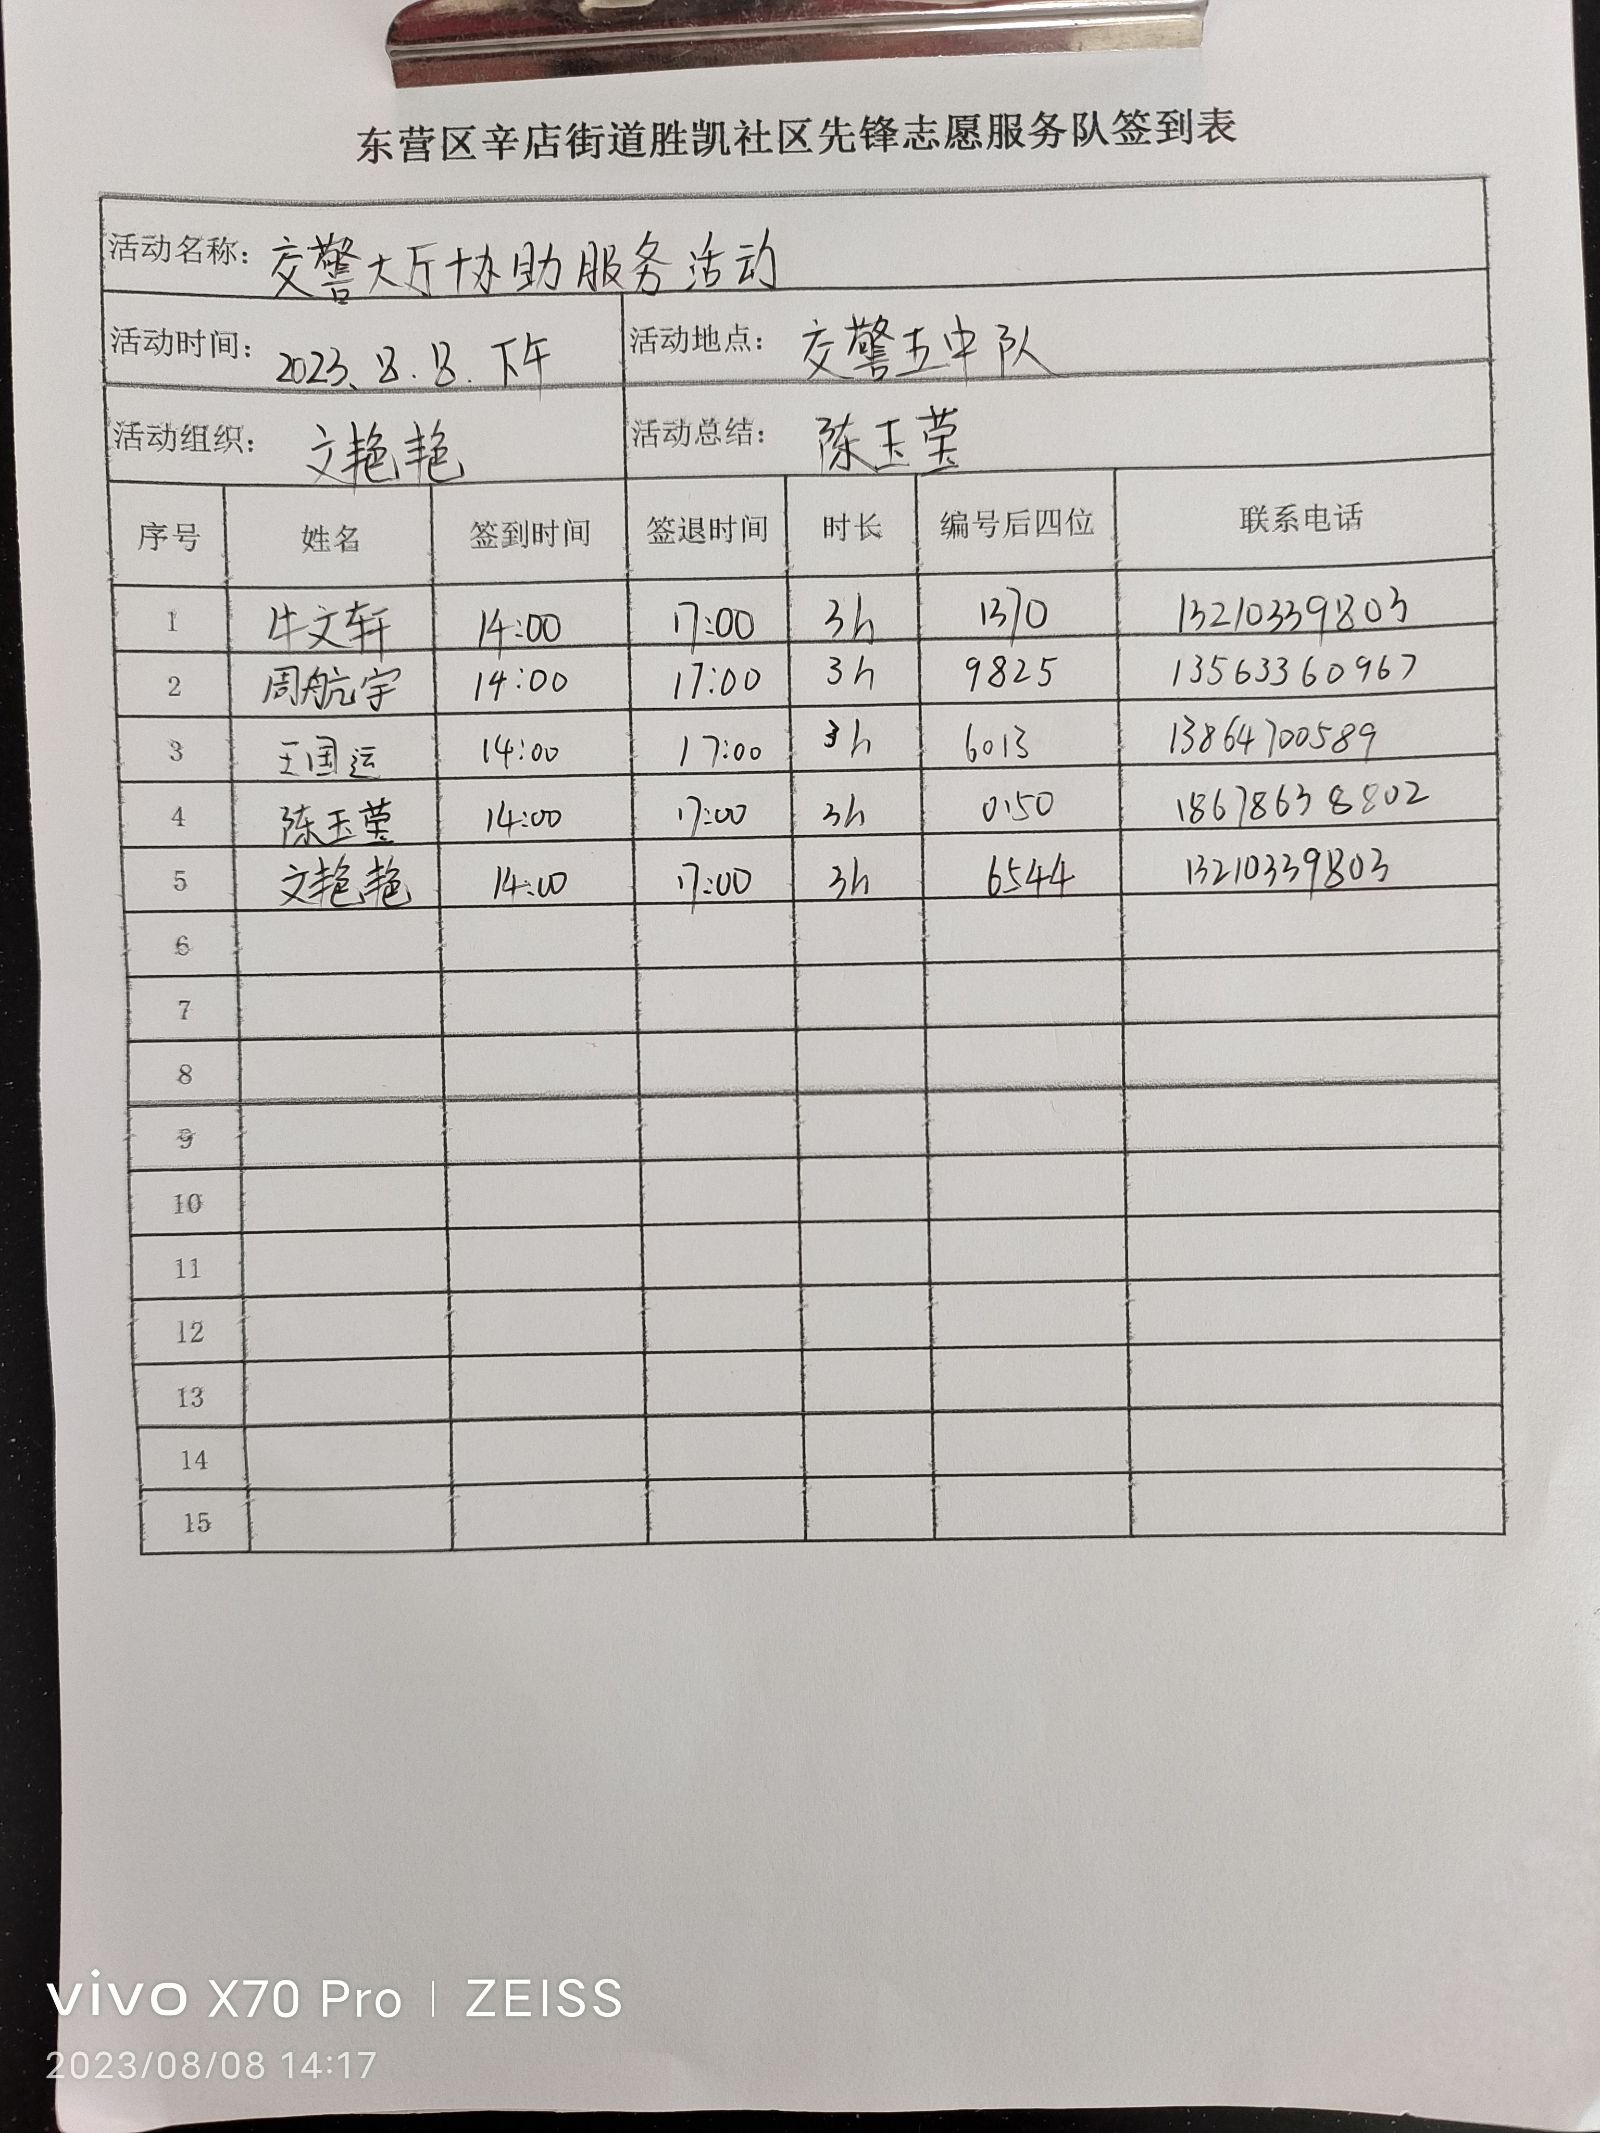 东营区辛店街道胜凯社区先锋志愿服务队签到表
活动名称: 交警大厅协助服务活动
活动时间: 2023.8.8.下午 活动地点: 交警五中队
活动组织: 文艳艳 活动总结: 陈玉莹
序号 姓名 签到时间 签退时间 时长 编号后四位 联系电话
1 牛文轩 14:00 17:00 3h 1370 13210339803
2 周航宇 14:00 17:00 3h 9825 13563360967
3 王国运 14:00 17:00 3h 6013 13864700589
4 陈玉莹 14:00 17:00 3h 0150 18678638802
5 文艳艳 14:00 17:00 3h 6544 13210339803
6
7
8
9
10
11
12
13
14
15
vivo X70 Pro | ZEISS
2023/08/08 14:17